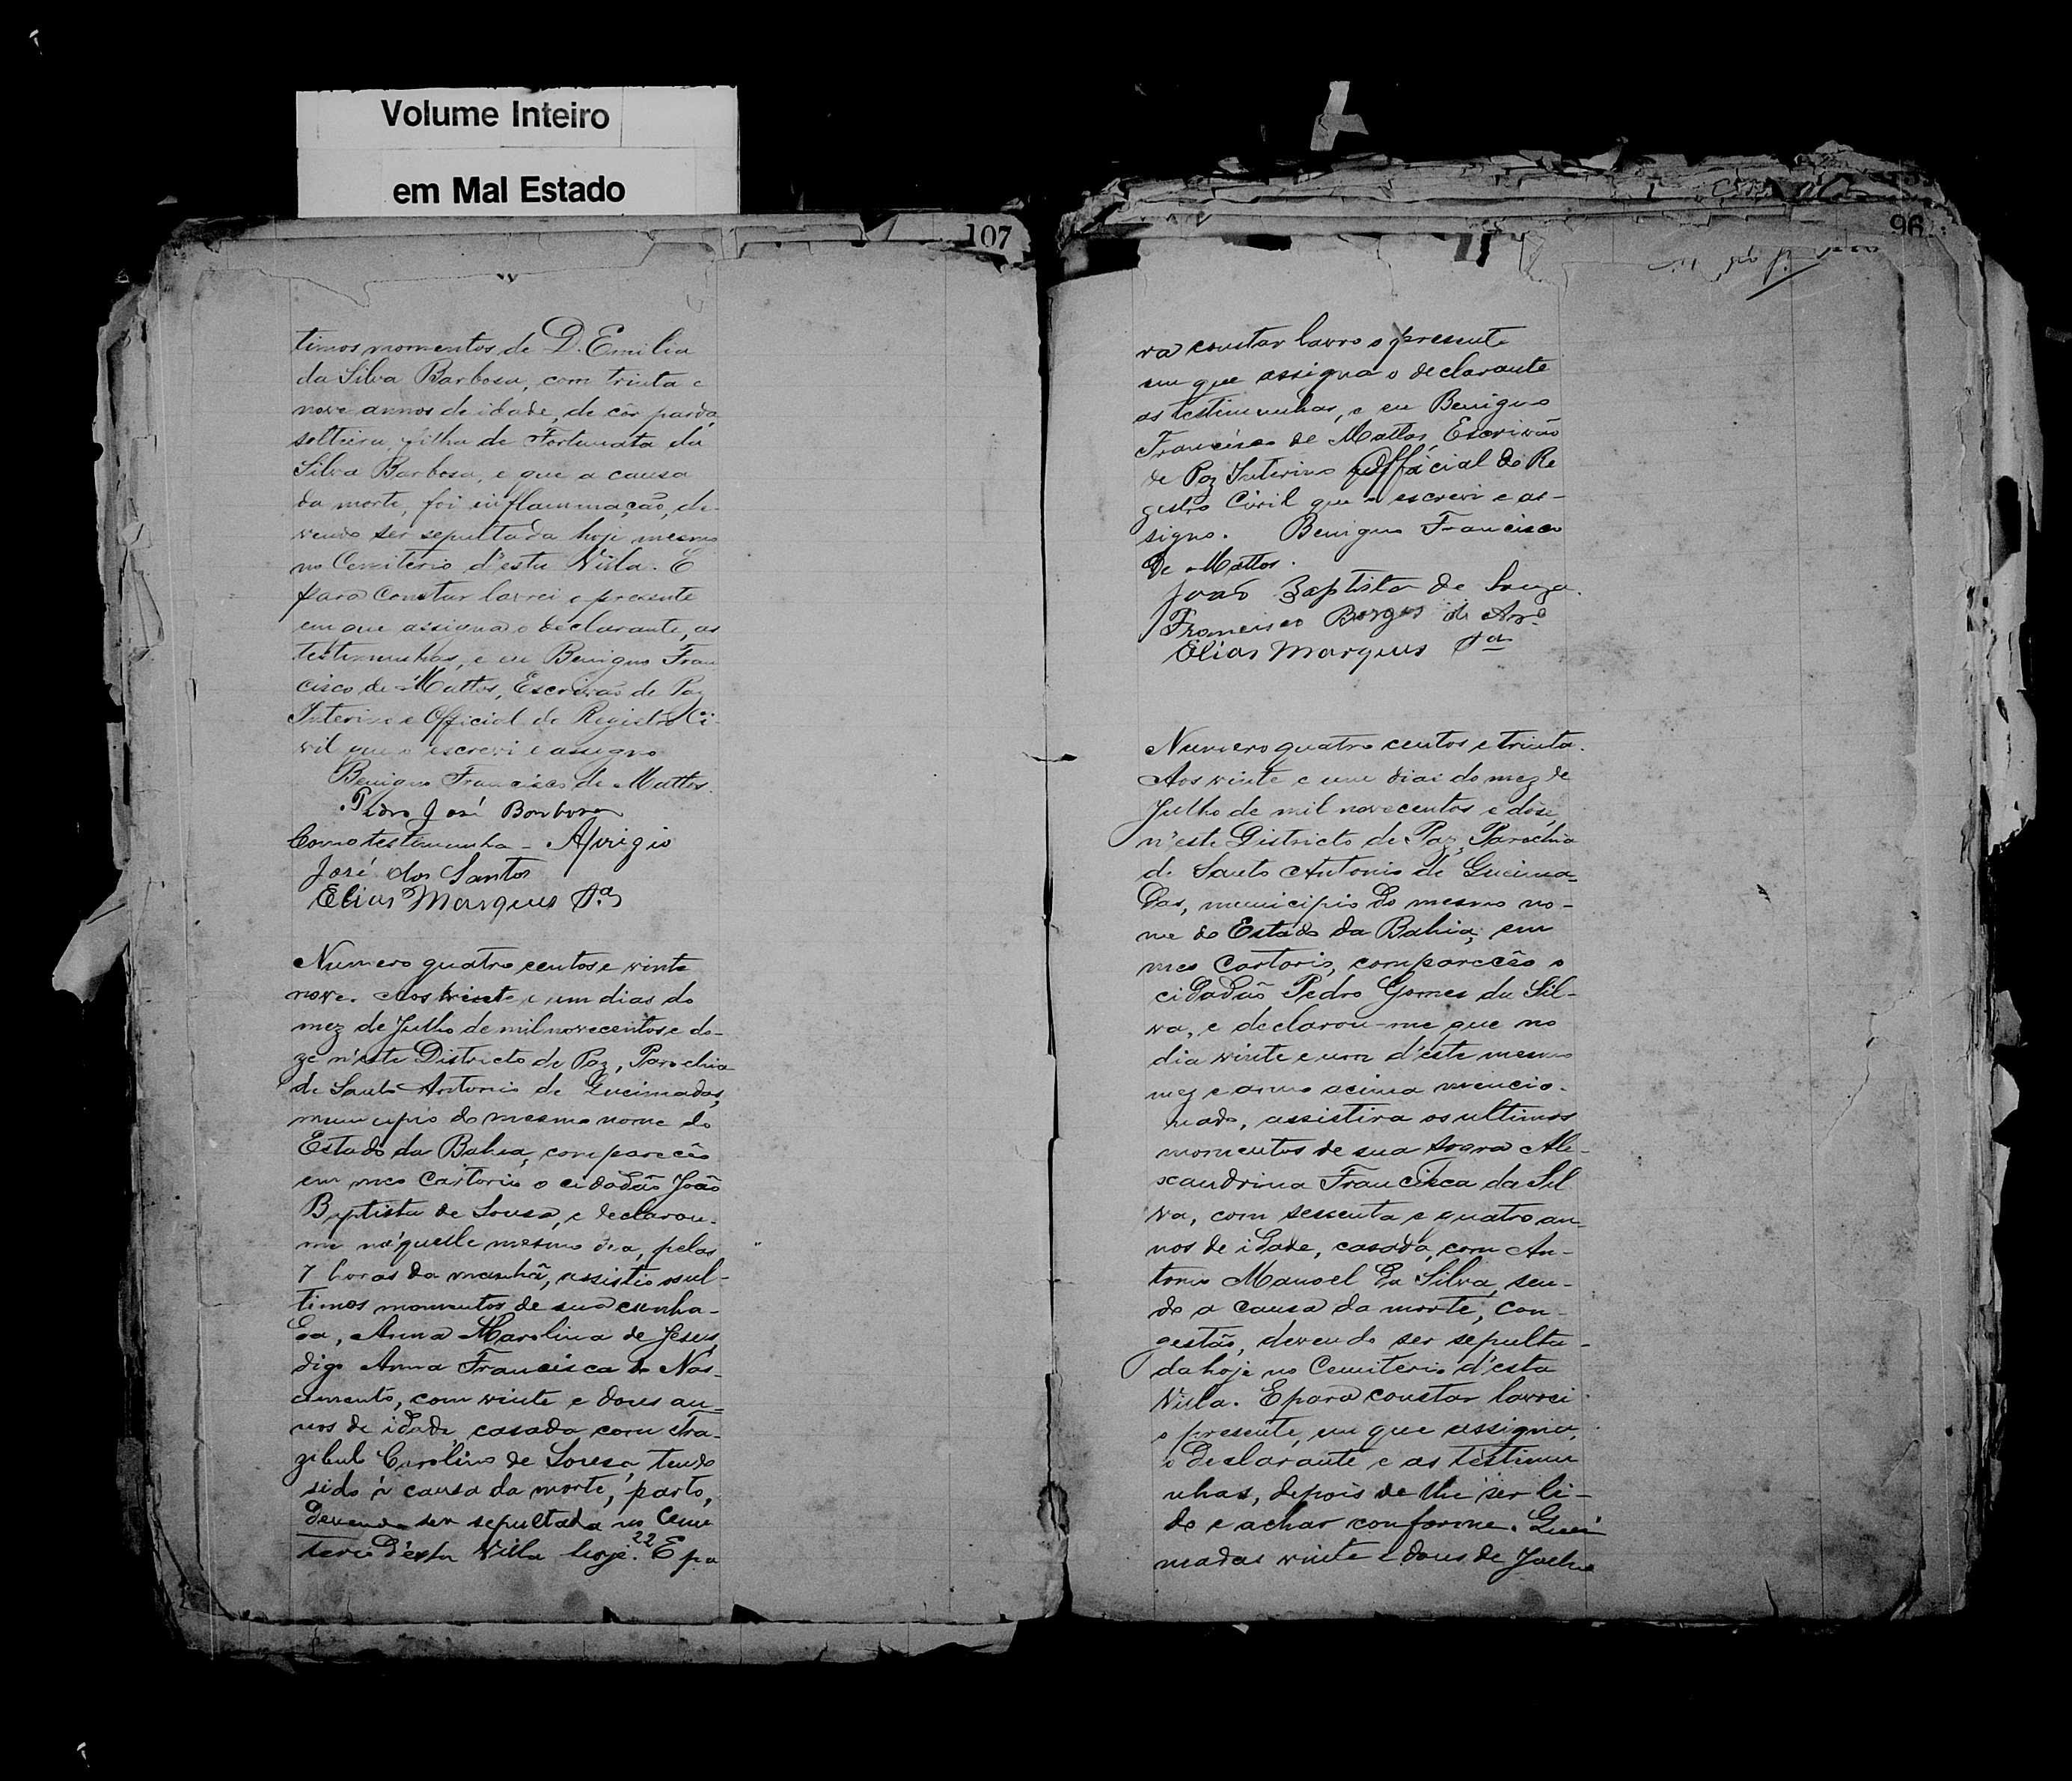 Volume Inteiro
em Mal Estado
107
timos momentos de D. Emilia
da Silva Barbosa, com trinta e
nove annos de idade, de côr parda,
solteira, filha de Fortunata da
Silva Barbosa, e que a causa
da morte, foi inflammação, de-
vendo ser sepultada hoje mesmo
no Cemiterio d'esta Villa. E
para constar lavrei o presente
em que assigna o declarante, as
testimunhas, e eu Benigno Fran
cisco de Mattos, Escrivão de Paz
Interino e Official de Registro Ci-
vil que o escrevi e assigno
Benigno Francisco de Mattos.
Pedro José Barbosa
Como testemunha - Aprigio
José dos Santos
Elias Marques Sª
Numero quatro centos e vinte
nove. Aos vinte e um dias do
mez de Julho de mil novecentos e do-
ze n'este Districto de Paz, Parochia
de Santo Antonio de Queimadas,
municipio do mesmo nome do
Estado da Bahia, compareceo
em meo Cartorio o cidadão João
Baptista de Sousa, e declarou-
me n'aquelle mesmo dia, pelas
7 horas da manhã, assistio os ul-
timos momentos de sua cunha-
da, Anna Carolina de Jesus,
digo Anna Francisca do Nas-
cimento, com vinte e dous an-
nos de idade, casada com
Carolino de Sousa, tendo
sido a causa da morte, parto,
devendo ser sepultada no Cemi
terio d'esta Villa hoje. 22 E pa
96
ra constar lavro o presente
em que assigna o declarante
as testimunhas, e eu Benigno
Francisco de Mattos, Escrivão
de Paz Interino Official do Re
gistro Civil que o escrevi e as-
signo. Benigno Francisco
de Mattos.
João Baptista de Souza.
Francisco Borges de Arº
Elias Marques Sª
Numero quatro centos e trinta.
Aos vinte e um dias do mez de
Julho de mil novecentos e dose,
n'este Districto de Paz, Parochia
de Santo Antonio de Queima-
das, municipio do mesmo no-
me do Estado da Bahia, em
meo Cartorio, compareceo o
cidadão Pedro Gomes da Sil-
va, e declarou-me que no
dia vinte e um d'este mesmo
mez e anno acima mencio-
nado, assistira os ultimos
momentos de sua sogra Ale-
xandrina Francisca da Sil
va, com sessenta e quatro an-
nos de idade, casada com An-
tonio Manoel da Silva, sen-
do a causa da morte, con-
gestão, devendo ser sepulta-
da hoje no Cemiterio d'esta
Villa. E para constar lavrei
o presente, em que assigna,
o declarante e as testimu
nhas, depois de lhe ser li-
do e achar conforme. Quei
madas vinte e dous de Julho